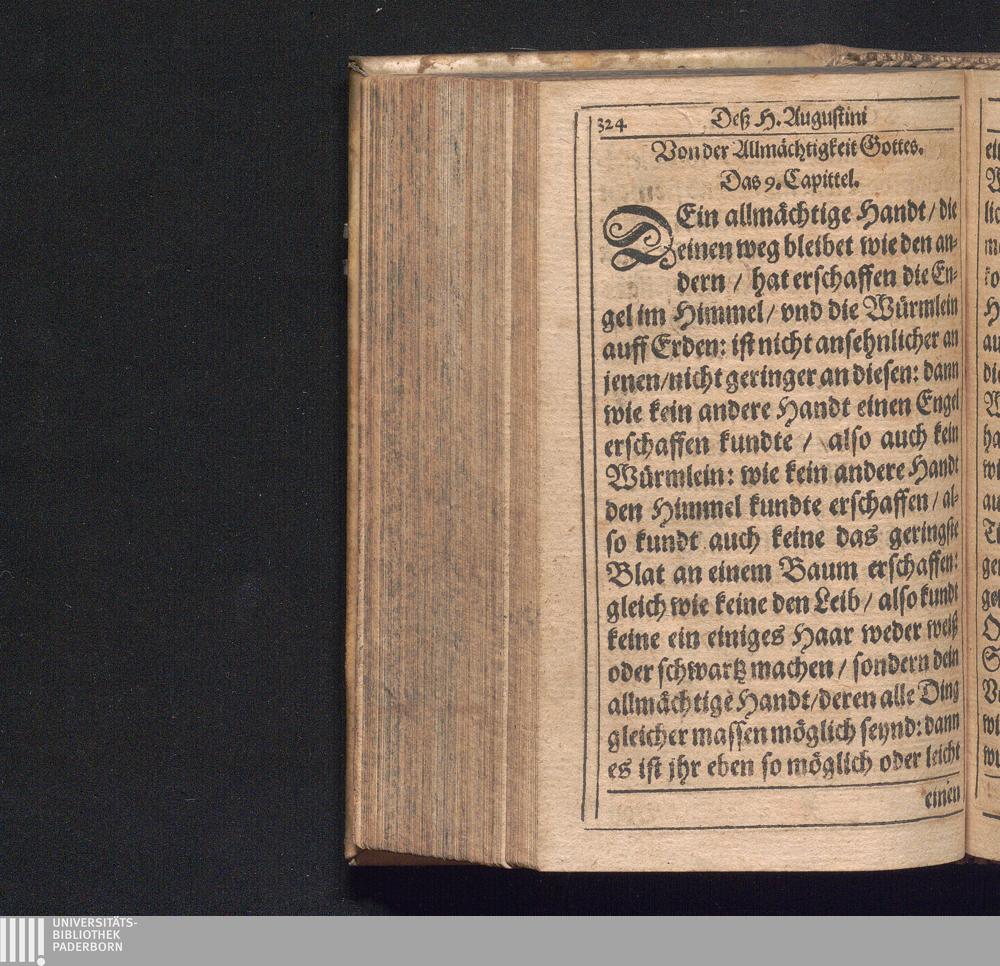 324 Deß H. Augustini
Von der Allmächtigkeit Gottes.
Das 9. Capittel.
DEin allmächtige Handt / die
einen weg bleibet wie den an-
dern / hat erschaffen die En-
gel im Himmel / vnd die Würmlein
auff Erden: ist nicht ansehnlicher an
jenen/nicht geringer an diesen: dann
wie kein andere Handt einen Engel
erschaffen kundte / also auch kein
Würmlein: wie kein andere Handt
den Himmel kundte erschaffen / al-
so kundt auch keine das geringste
Blat an einem Baum erschaffen:
gleich wie keine den Leib / also kundt
keine ein einiges Haar weder weiß
oder schwartz machen / sondern dein
allmächtige Handt/deren alle Ding
gleicher massen möglich seynd: dann
es ist jhr eben so möglich oder leicht
einen
UNIVERSITÄTS-
BIBLIOTHEK
PADERBORN